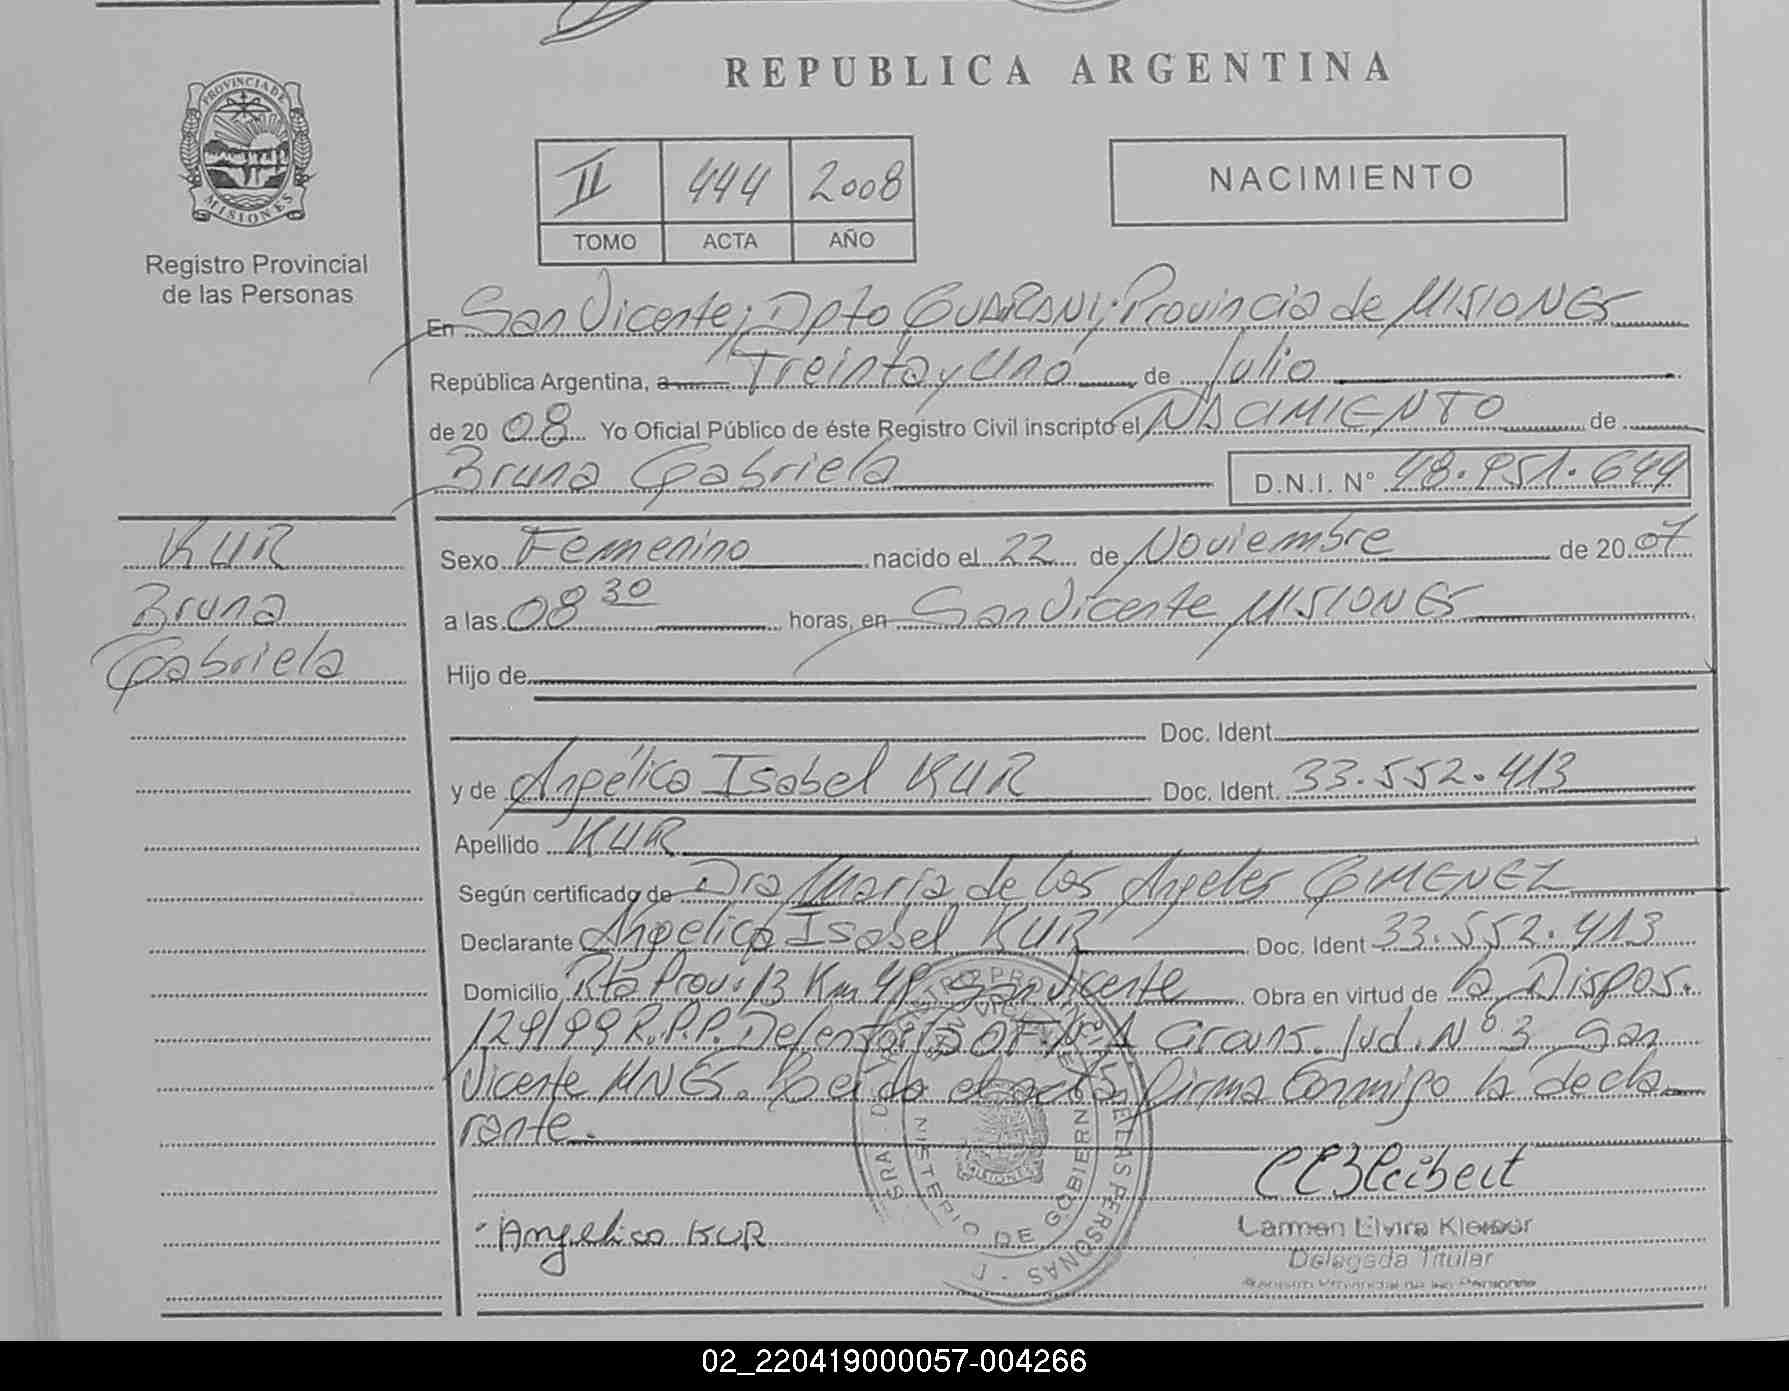 REPUBLICA ARGENTINA
PROVINCIA DE
MISIONES
Registro Provincial
de las Personas
II 444 2008
TOMO ACTA AÑO
NACIMIENTO
En San Vicente; Dpto GUARANI; Provincia de MISIONES
República Argentina, a Treinta y Uno de Julio
de 2008 Yo Oficial Público de éste Registro Civil inscripto el NACIMIENTO de
Bruna Gabriela D.N.I. Nº 48.951.644
KUR
Bruna
Gabriela
Sexo Femenino nacido el 22 de Noviembre de 2007
a las 08 30 horas, en San Vicente MISIONES
Hijo de
Doc. Ident.
y de Angélica Isabel KUR Doc. Ident. 33.552.413
Apellido KUR
Según certificado de Dra Maria de los Angeles GIMENEZ
Declarante Angelica Isabel KUR Doc. Ident 33.552.413
Domicilio Rta Prov. 13 Km 48 San Vicente Obra en virtud de la Dispos.
129/99 R.P.P. Defensoría OFICIAL Circuns. Jud. Nº 3 San
Vicente MNES. Leida el acta firma conmigo la decla
rante.
CEBleibert
Angelica KUR
Carmen Elvira
Delegada Titular
Registro Provincial de las Personas
MINISTERIO DE GOBIERNO
DE LAS PERSONAS
MISIONES
02_220419000057-004266